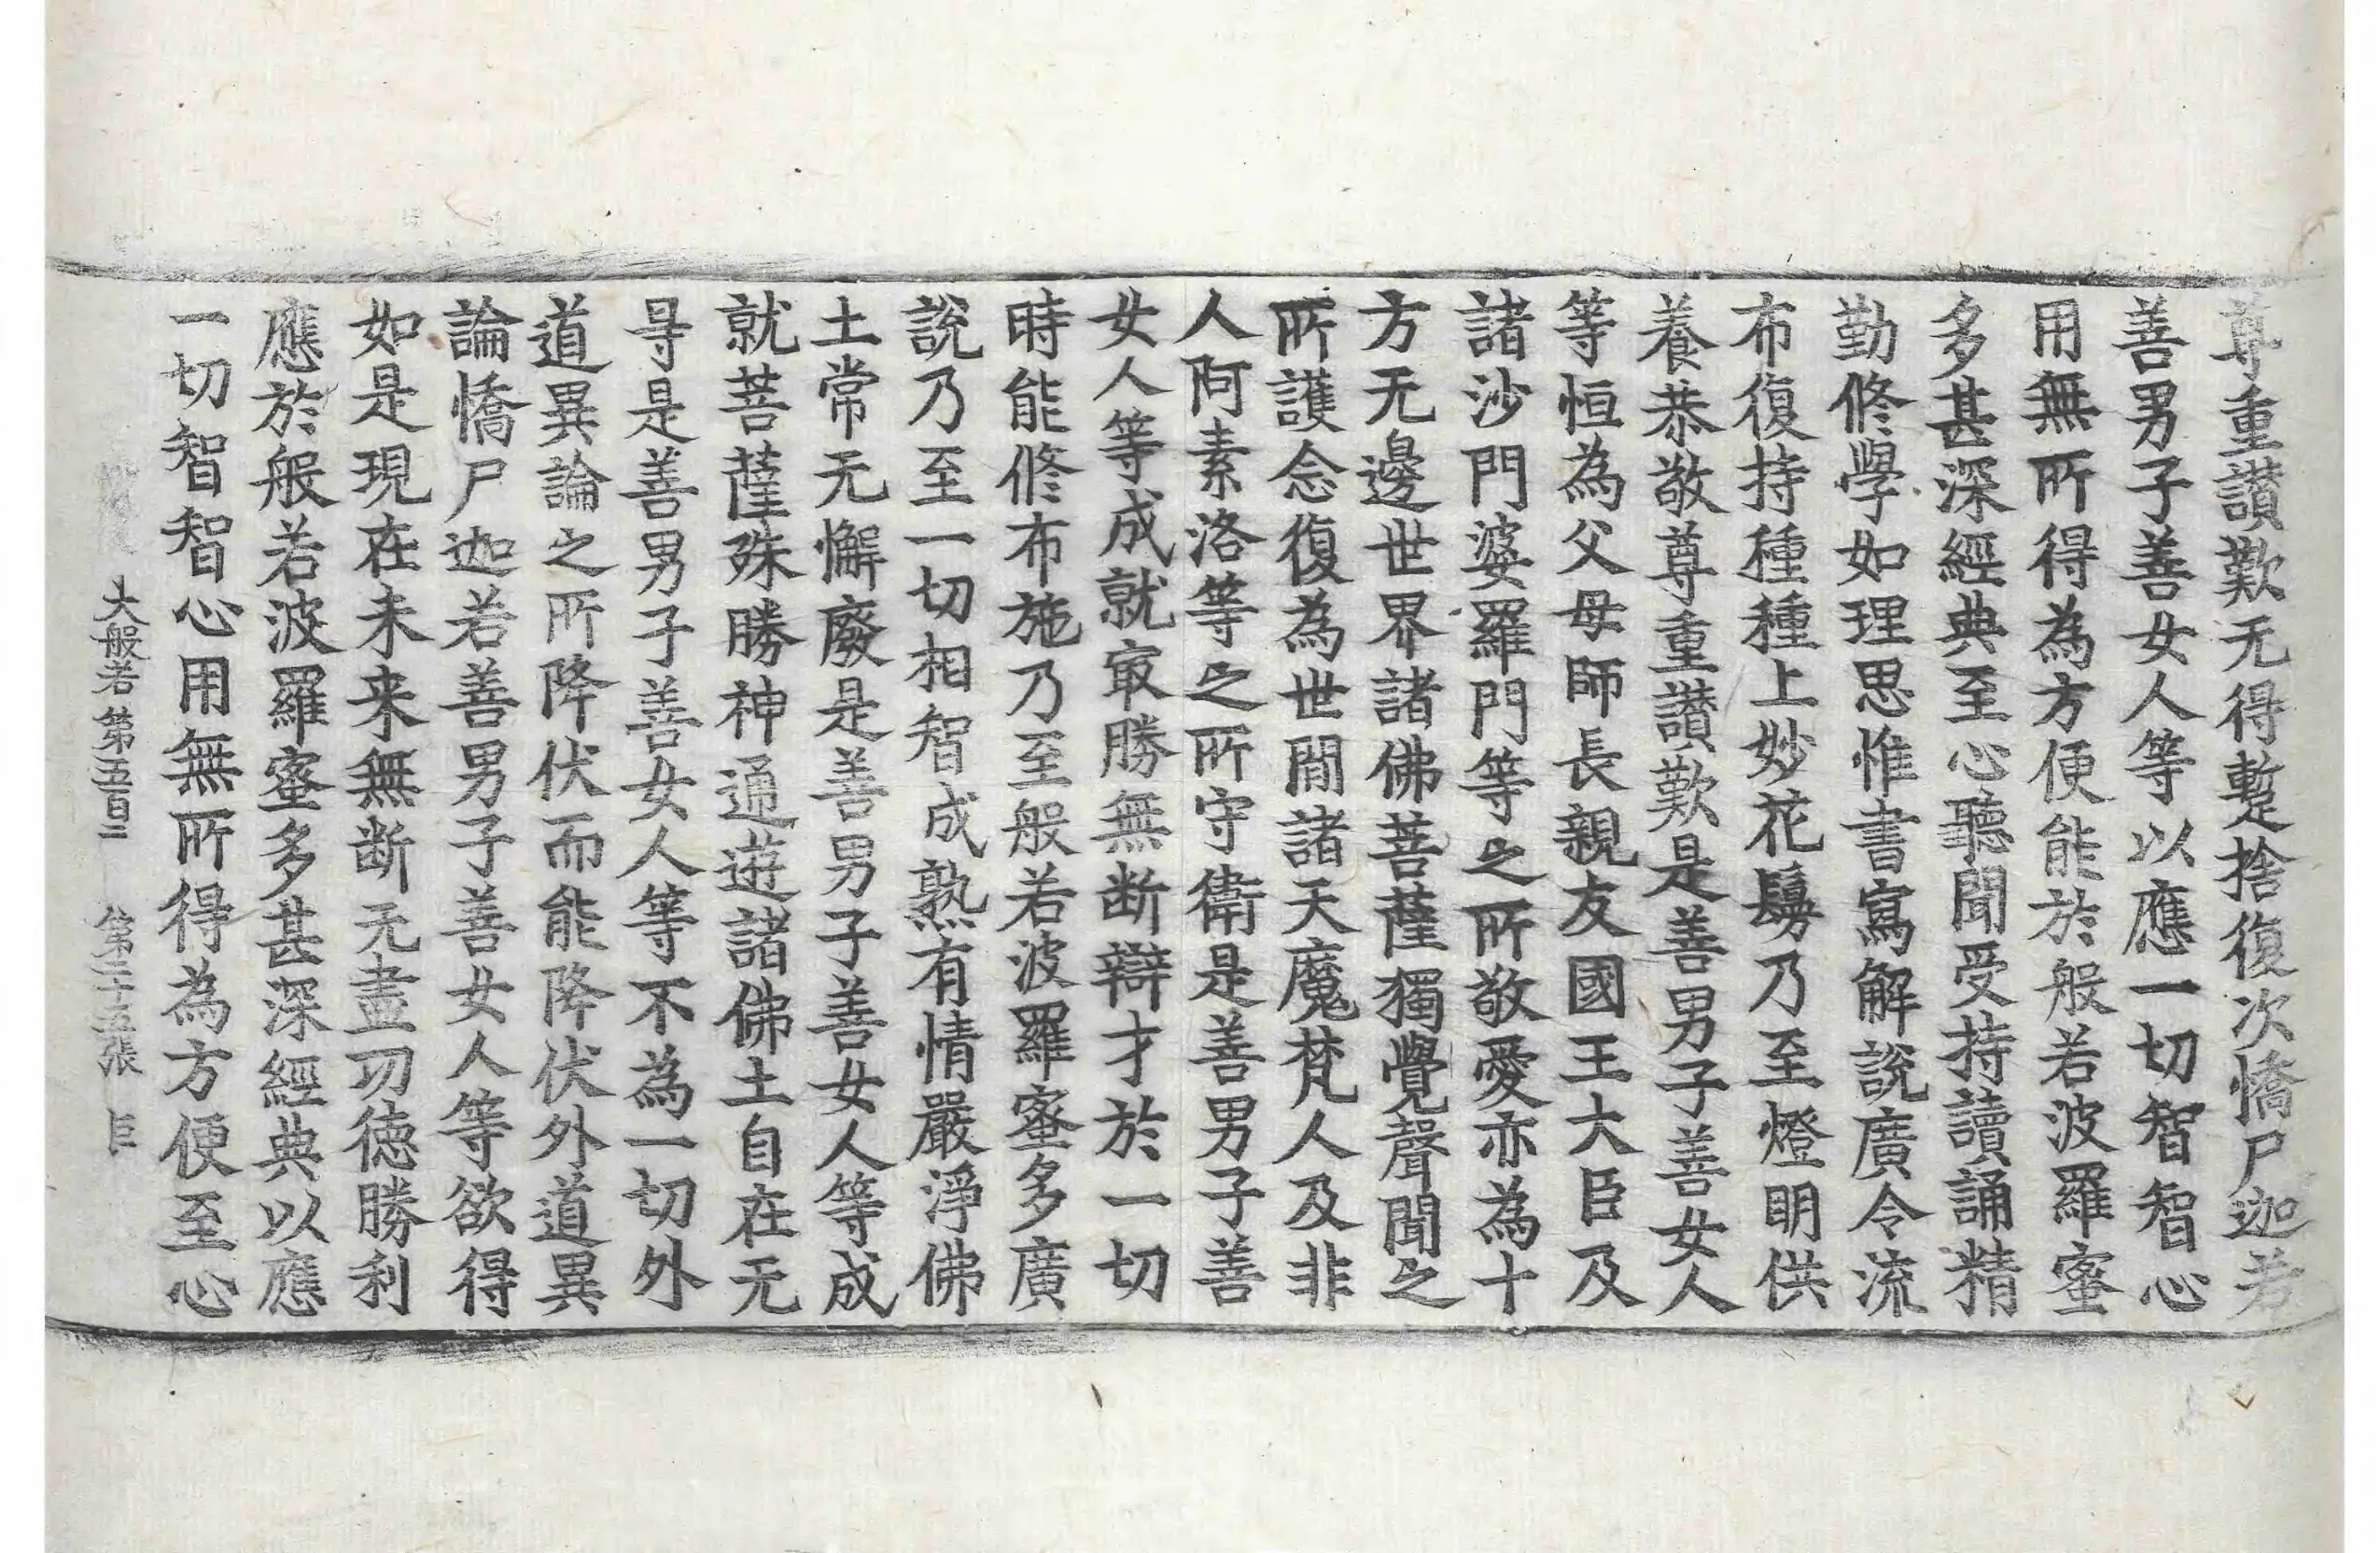 尊重讃歎无得蹔捨復次憍尸迦若
善男子善女人等以應一切智智心
用無所得為方便能於般若波羅蜜
多甚深經典至心聽聞受持讀誦精
勤修學如理思惟書寫解說廣令流
布復持種種上妙花鬘乃至燈明供
養恭敬尊重讃歎是善男子善女人
等恒為父母師長親友國王大臣及
諸沙門婆羅門等之所敬愛亦為十
方无邊世界諸佛菩薩獨覺聲聞之
所護念復為世間諸天魔梵人及非
人阿素洛等之所守衛是善男子善
女人等成就㝡勝無断辯才於一切
時能修布施乃至般若波羅蜜多廣
說乃至一切相智成熟有情嚴淨佛
土常无懈廢是善男子善女人等成
就菩薩殊勝神通遊諸佛土自在无
㝵是善男子善女人等不為一切外
道異論之所降伏而能降伏外道異
論憍尸迦若善男子善女人等欲得
如是現在未来無断无盡功徳勝利
應於般若波羅蜜多甚深經典以應
一切智智心用無所得為方便至心
大般若第五百二 第二十五張 臣